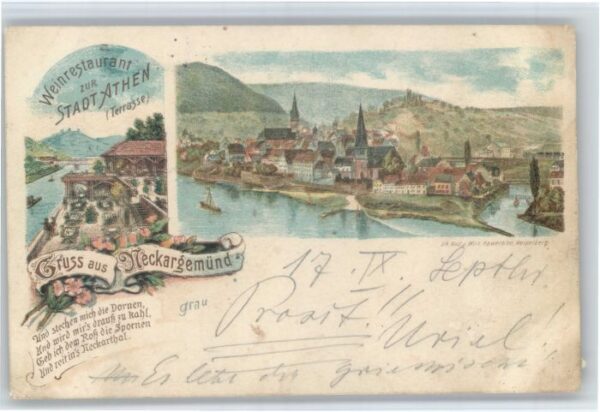 Weinrestaurant
ZUR
STADT ATHEN
(Terrasse)
Gruss aus Neckargemünd.
Und stechen mich die Dornen,
Und wird mir's drauß zu kahl,
Geb ich dem Roß die Spornen
Und reit in's Neckarthal.
grau
17. IX.
Prosit!!
Uriel.
Es lebe der